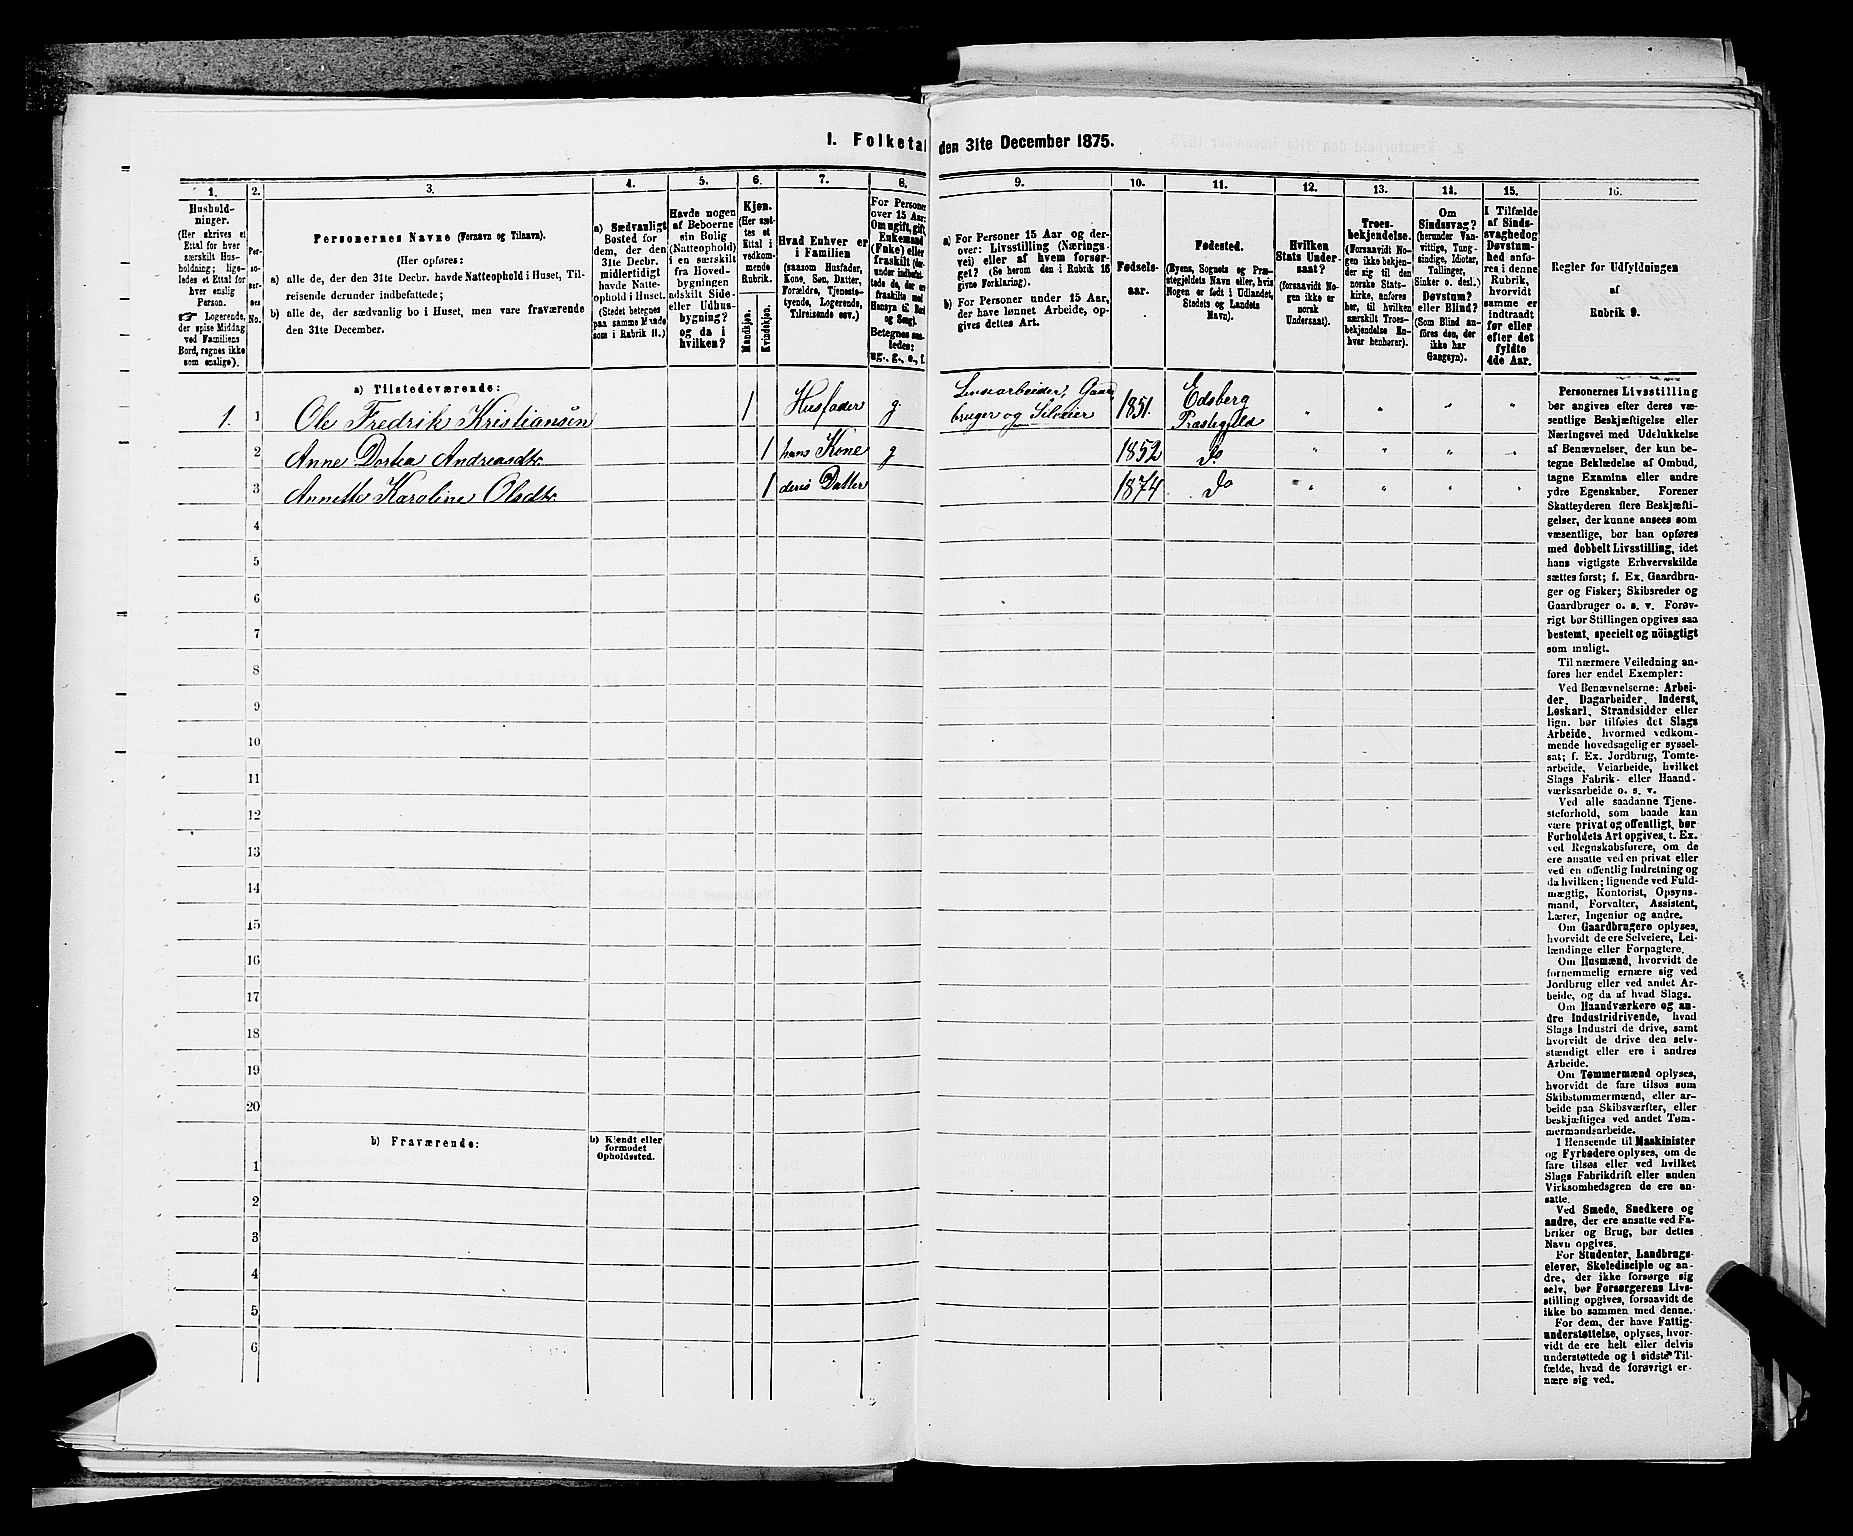 I. Folketal
den 31te December 1875.
1.
2.
3.
4.
5.
6.
7.
8.
9.
10.
11.
12.
13.
14.
15.
16.
Hushold-
ninger.
(Her skrives et
Ettal for hver
særskilt Hus-
holdning; lige-
ledes et Ettal for
hver enslig
Person.
☞ Logerende,
der spise Middag
ved Familiens
Bord, regnes ikke
som enslige).
Per-
so-
ner-
nes
No.
Personernes Navne (Fornavn og Tilnavn).
(Her opføres:
a) alle de, der den 31te Decbr. havde Natteophold i Huset, Til-
reisende derunder indbefattede;
b) alle de, der sædvanlig bo i Huset, men vare fraværende
den 31te December.
a) Sædvanligt
Bosted for
dem, der den
31te Decbr.
midlertidigt
havde Natte-
ophold i Huset.
(Stedet betegnes
paa samme Maade
som i Rubrik 11.)
Havde nogen
af Beboerne
ein Bolig
(Natteophold)
i en særskilt
fra Hoved-
bygningen
adskilt Side-
eller Udhus-
bygning?
og da i
hvilken?
Kjøn.
(Her sæt-
tes et
Ettal i
vedkom-
mende
Rubrik.
Mandkjøn.
Kvindekjøn.
Hvad Enhver er
i Familien
(saasom Husfader,
Kone, Søn, Datter,
Forældre, Tjeneste-
tyende, Logerende,
Tilreisende osv.)
For Personer
over 15 Aar:
Om ugift, gift,
Enkemand
(Enke) eller
fraskilt (der-
under indbefat-
tede de, der ere
fraskilte med
Hensyn til Bord
og Seng).
Betegnes saa-
ledes:
ug., g., e., f.
a) For Personer 15 Aar og der-
over: Livsstilling (Nærings-
vei) eller af hvem forsør-
get? (Se herom den i Rubrik 16
givne Forklaring).
b) For Personer under 15 Aar,
der have lønnet Arbeide, op-
gives dettes Art.
Fødsels-
aar.
Fødested.
(Byens, Sognets og Præ-
stegjeldets Navn eller, hvis
Nogen er født i Udlandet,
Stedets og Landets
Navn).
Hvilken
Stats Under-
saat?
(forsaavidt No-
gen ikke er
norsk
Undersaat).
Troes-
bekjendelse.
(Forsaavidt No-
gen ikke bekjen-
der sig til den
norske Stats-
kirke, anføres
her, til hvilken
særskilt Troes-
bekjendelse En-
hver henhører).
Om
Sindssvag?
(herunder Van-
vittige, Tung-
sindige, Idioter,
Tullinger,
Sinker o. desl.)
Døvstum?
eller Blind?
(Som Blind an-
føres den, der
ikke har
Gangsyn).
I Tilfælde
af Sinds-
svaghed og
Døvstum-
hed anfø-
res i denne
Rubrik,
hvorvidt
samme er
indtraadt
før eller
efter det
fyldte
4de Aar.
Regler for Udfyldningen
af
Rubrik 9.
a) Tilstedeværende:
1. 1 Ole Fredrik Kristiansen 1 Husfader g Gaard 1851. Edsberg " " " "
bruger og Selveier Præstegjeld
2 Anne Dortea Andreasdtr. 1 hans Kone g 1852 Do " " " "
3 Annette Karoline Olsdtr. 1 deres Datter 1874 Do " " " "
4
5
6
7
8
9
10
11
12
13
14
15
16
17
18
19
20
b) Fraværende:
b) Kjendt eller
formodet
Opholdssted.
1
2
3
4
5
6
Personernes Livsstilling
bør angives efter deres væ-
sentlige Beskjæftigelse eller
Næringsvei med Udelukkelse
af Benævnelser, der kun be-
tegne Beklædelse af Ombud,
tagne Examina eller andre
ydre Egenskaber. Forener
Skatteyderen flere Beskjæfti-
gelser, der kunne ansees som
væsentlige, bør han opføres
med dobbelt Livsstilling, idet
hans vigtigste Erhvervskilde
sættes først; f. Ex. Gaardbru-
ger og Fisker; Skibsreder og
Gaardbruger o. s. v. Forøv-
rigt bør Stillingen opgives saa
bestemt, specielt og nøiagtigt
som muligt.
Til nærmere Veiledning an-
føres her endel Exempler:
Ved Benævnelserne: Arbei-
der, Dagarbeider, Inderst,
Løskarl, Strandsidder eller
lign. bør tilføies det Slags
Arbeide, hvormed vedkom-
mende hovedsagelig er syssel-
sat; f. Ex. Jordbrug, Tomte-
arbeide, Veiarbeide, hvilket
Slags Fabrik- eller Haand-
værksarbeide o. s. v.
Ved alle saadanne Tjene-
steforhold, som baade kan
være privat og offentligt, bør
Forholdets Art opgives, t. Ex.
ved Regnskabsførere, om de
ere ansatte ved en privat eller
ved en offentlig Indretning og
da hvilken; lignende ved Fuld-
mægtig, Kontorist, Opsyns-
mand, Forvalter, Assistent,
Lærer, Ingeniør og andre.
Om Gaardbrugere oplyses,
hvorvidt de ere Selveiere, Lei-
lændinge eller Forpagtere.
Om Husmænd, hvorvidt de
fornemmelig ernære sig ved
Jordbrug eller ved andet Ar-
beide, og da af hvad Slags.
Om Haandværkere og an-
dre Industridrivende, hvad
Slags Industri de drive, samt
hvorvidt de drive den selv-
stændigt eller ere i andres
Arbeide.
Om Tømmermænd oplyses,
hvorvidt de fare tilsøs som
Skibstømmermænd, eller ar-
beide paa Skibsværfter, eller
beskjæftiges ved andet Tøm-
mermandsarbeide.
I Henseende til Maskinister
og Fyrbødere oplyses, om de
fare tilsøs eller ved hvilket
Slags Fabrikdrift eller anden
Virksomhedsgren de ere an-
satte.
Ved Smede, Snedkere og
andre, der ere ansatte ved Fa-
briker og Brug, bør dettes
Navn opgives.
For Studenter, Landbrugs-
elever, Skoledisciple og an-
dre, der ikke forsørge sig
selv, bør Forsørgerens Livs-
stilling opgives, forsaavidt de
ikke bo sammen med denne.
For dem, der have Fattig-
understøttelse, oplyses, hvor-
vidt de ere helt eller delvis
understøttede og i sidste Til-
fælde, hvad de forøvrigt er-
nære sig ved.